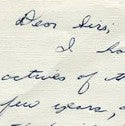 Dear Sirs,
I ha
actives of t
few years,